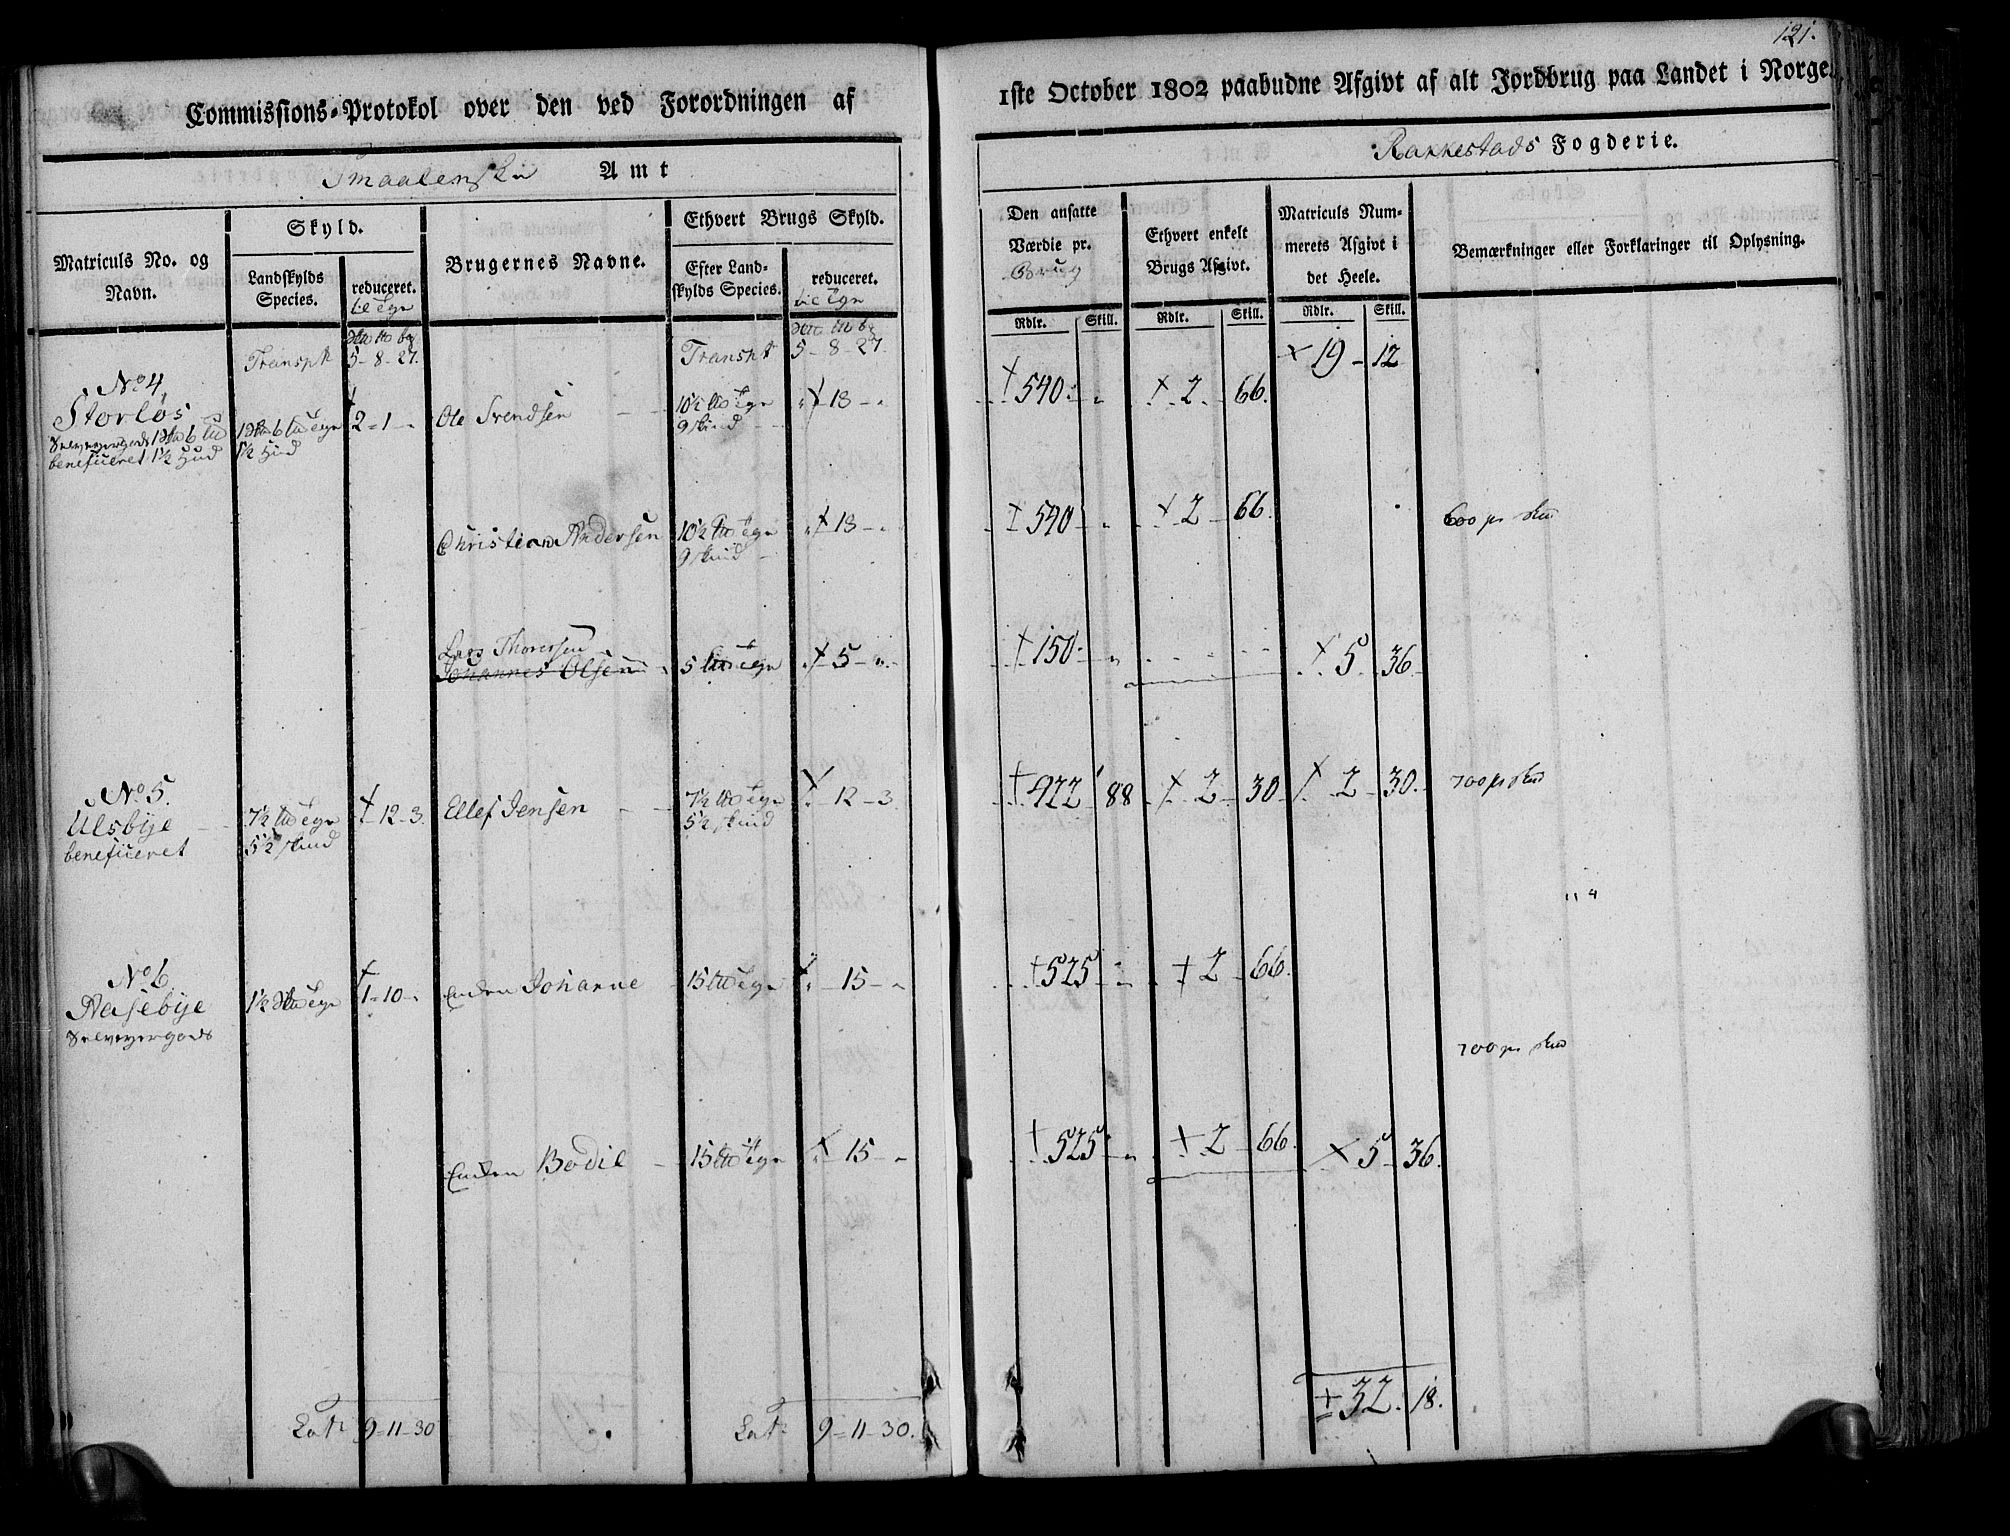 121.
Commissions-Protokol over den ved Forordningen af
1ste October 1802 paabudne Afgivt af alt Jordbrug paa Landet i Norge.
Smaalenske Amt
Rakkestads Fogderie.
Matriculs No. og Navn.
Skyld.
Landskylds Species.
reduceret.
Brugernes Navne.
Ethvert Brugs Skyld.
Efter Landskylds Species.
reduceret.
Den ansatte Værdie pr. Brug
Ethvert enkelt Brugs Afgivt.
Matriculs Nummerets Afgivt i det Heele.
Bemærkninger eller Forklaringer til Oplysning.
Rdlr. Skill. Rdlr. Skill. Rdlr. Skill.
Transpt 5-8-27. Transpt 5-8-27. 19-12
No 4
Storløs
benificeret 1½ Hud
1½ Hud
2-1-
Ole Svendsen
10½
9 skind
18-
540 2 66.
Christian Andersen
10½
9 skind
18-
540 2 66.
600
Lars Thoresen
Johannes Olsen
5
5-
150 5 36
No 5.
Ulsbye
benificeret
7½
5½ skind
12-3
Ellef Jensen
7½
5½ skind
12-3
422 88 2 30 2 30.
700
No 6
Aasebye
Selveyergods
1½
1-10-
Enken Johanne
15
15-
525 2 66.
700
Enken Bodil
15
15-
525 2 66. 5 36.
Lat. 9-11-30 Lat. 9-11-30. 32. 18.